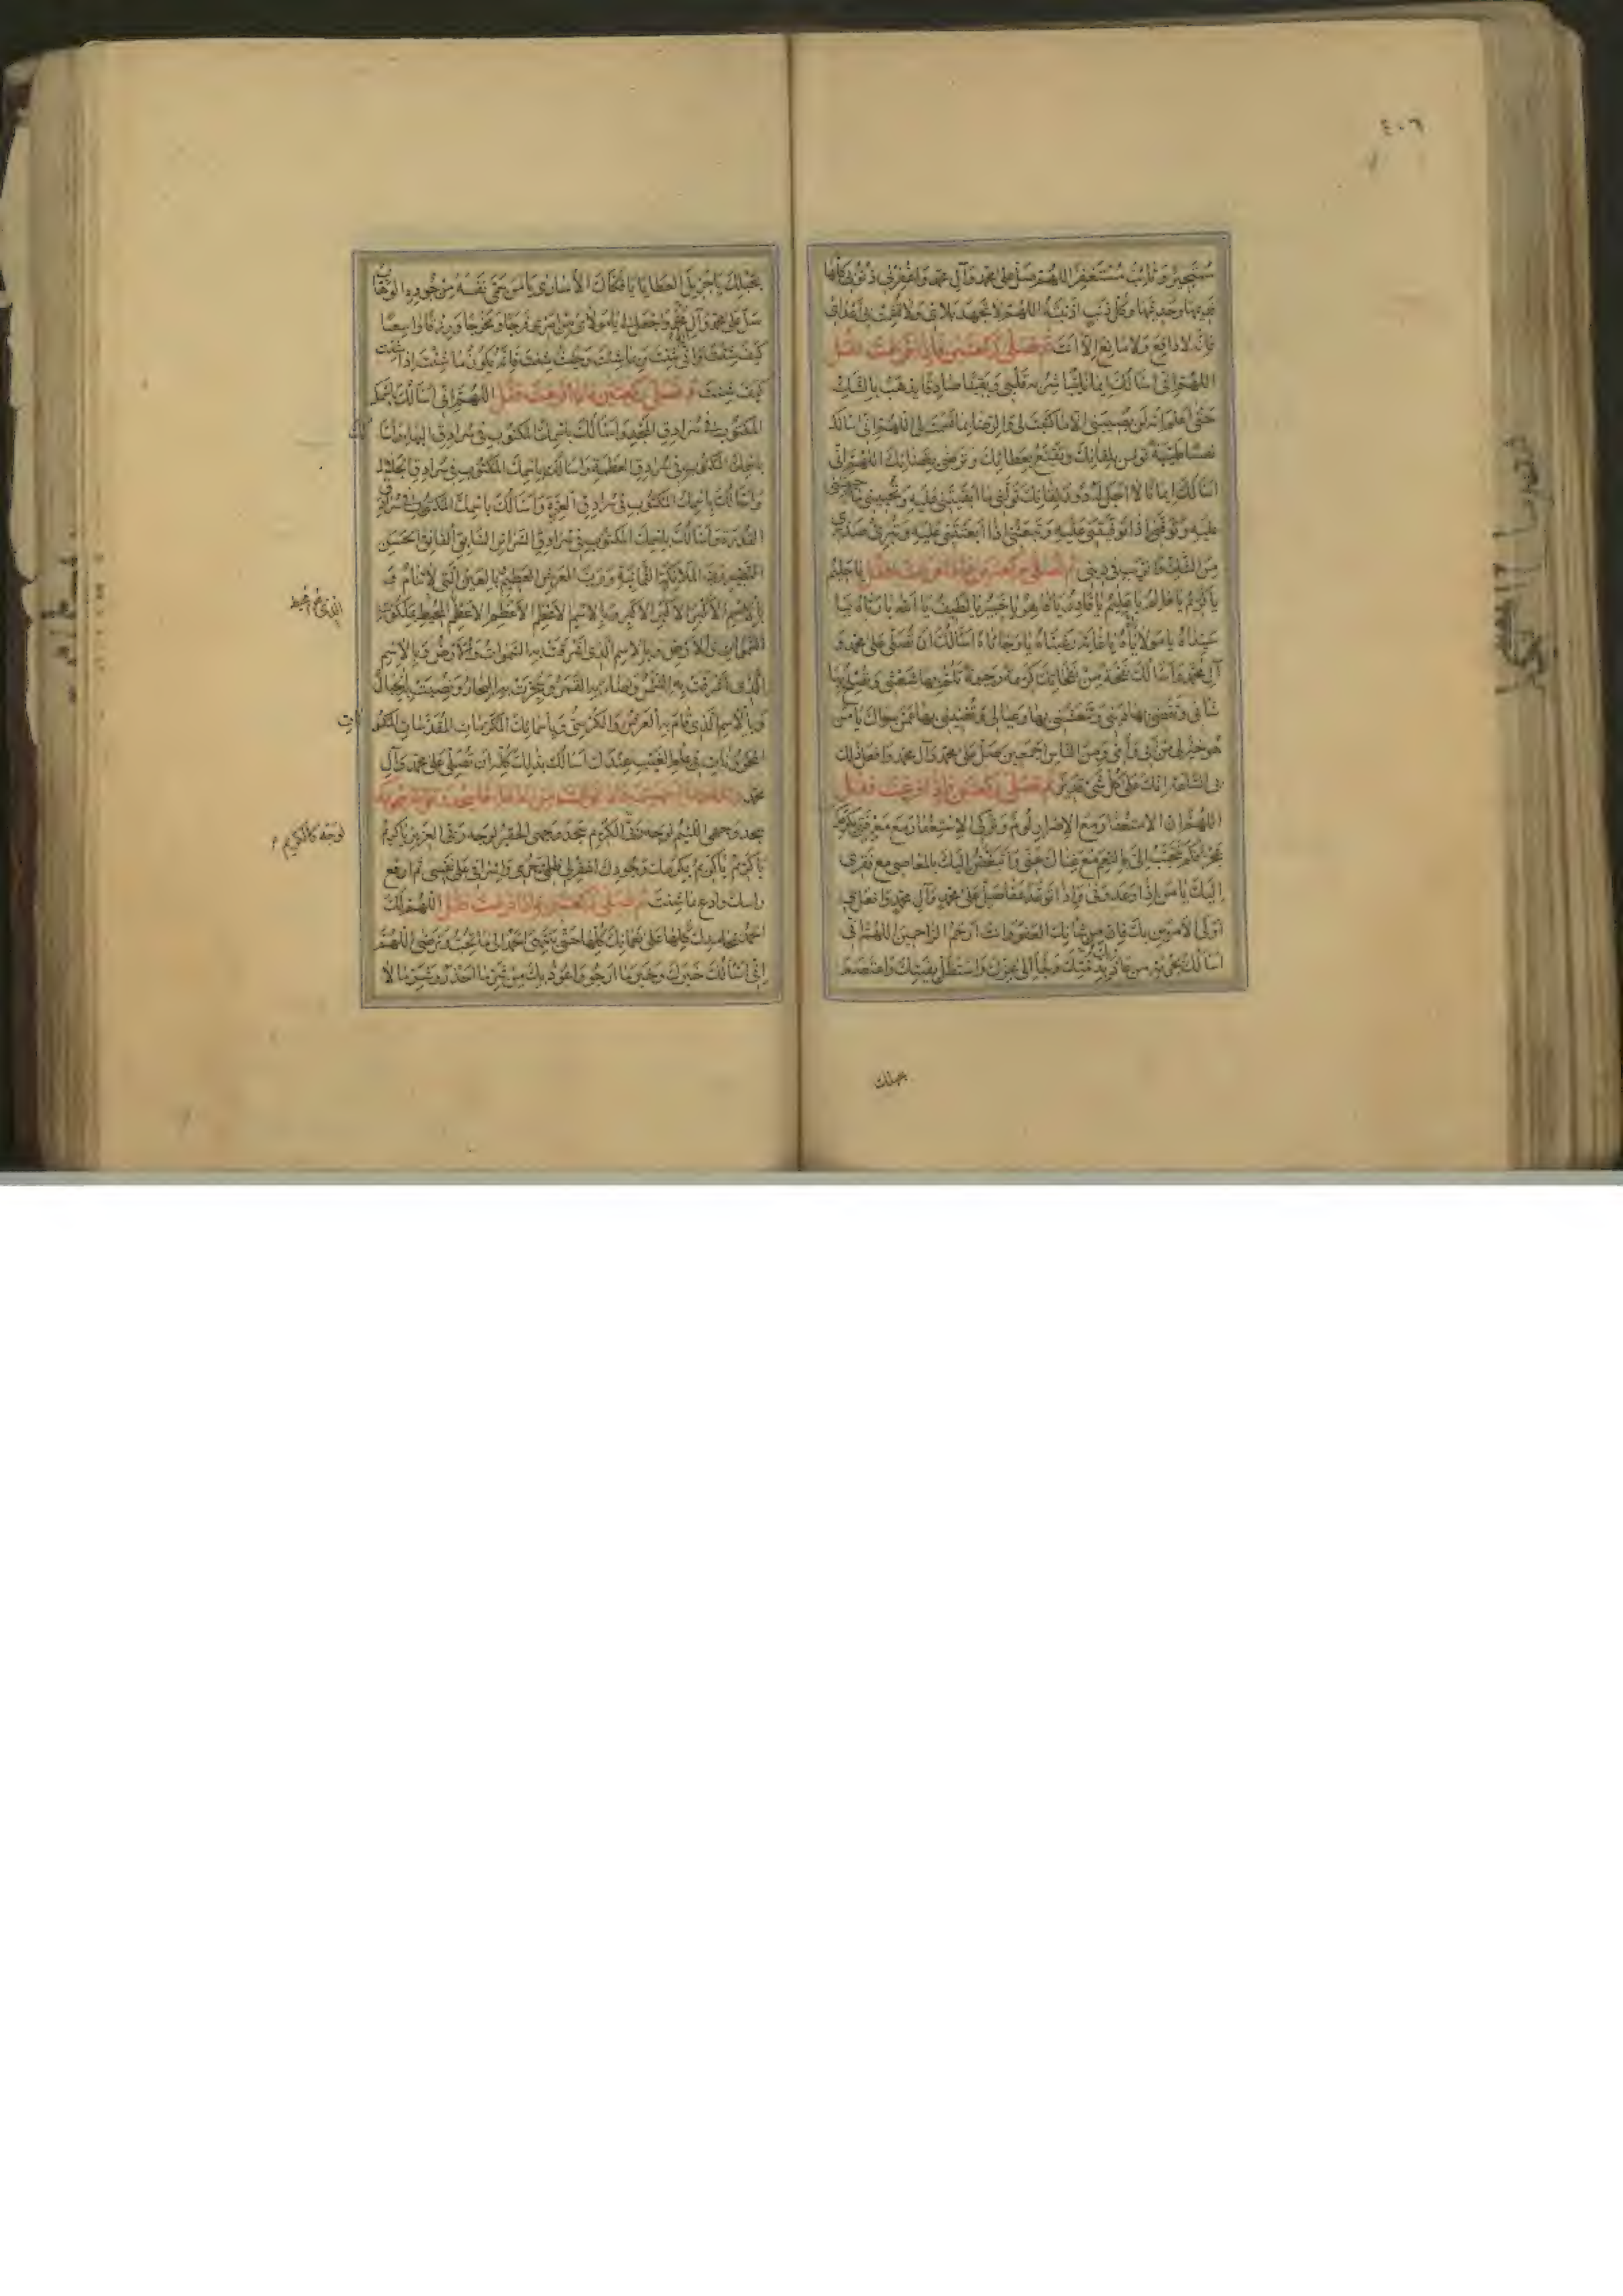 ٤٠٦
مستجير وتائب مستغفر اللهم صل على محمد وآل محمد واغفر لي ذنوبي كلها
قديمها وحديثها وكل ذنب اذنبته اللهم لا تجهد بلائي ولا تشمت بي اعدائي
فانه لا دافع ولا مانع الا انت ثم تصلي ركعتين فاذا فرغت فقل
اللهم اني اسالك ايمانا تباشر به قلبي ويقينا صادقا يذهب بالشك
حتى اعلم انه لن يصيبني الا ما كتبت لي والرضا بما قسمت لي اللهم اني اسالك
نفسا طيبة تؤمن بلقائك وتقنع بعطائك وترضى بقضائك اللهم اني
اسالك ايمانا لا اجل له دون لقائك تولني ما ابقيتني عليه وتحييني ما احييتني
عليه وتوفني اذا توفيتني عليه وتبعثني اذا بعثتني عليه وتبرئ صدري
من الشك والريب في ديني ثم تصلي ركعتين فاذا فرغت فقل يا حليم
يا كريم يا عالم يا عليم يا قادر يا قاهر يا خبير يا لطيف يا الله يا رباه يا
سيداه يا مولاياه يا غاية رغبتاه يا رجاياه اسالك ان تصلي على محمد و
آل محمد واسالك نفحة من نفحاتك كريمة رحيمة تلم بها شعثي وتصلح بها
شاني وتقضي بها ديني وتنعشني بها وعيالي وتغنيني بها عمن سواك يا من
هو خير لي من ابي وامي ومن الناس اجمعين صل على محمد وآل محمد وافعل ذلك
بي الساعة انك على كل شيء قدير ثم تصلي ركعتين فاذا فرغت فقل
اللهم ان الاستغفار مع الاصرار لؤم وتركي الاستغفار مع معرفتي بكرمك
عجز فكم تتحبب الي بالنعم مع غناك عني واتبغض اليك بالمعاصي مع فقري
اليك يا من اذا وعد وفى واذا توعد عفا صل على محمد وآل محمد وافعل بي
اولى الامرين بك فان من شانك العفو وانت ارحم الراحمين اللهم اني
اسالك بحرمة من عاذ بذمتك ولجا الى عزك واستظل بفيئك واعتصم
بحبلك
بحبلك يا جزيل العطايا يا فكاك الاسارى يا من سمى نفسه من جوده الوهاب
صل على محمد وآل محمد واجعل لي يا مولاي من امري فرجا ومخرجا ورزقا واسعا
كيف شئت وانى شئت وبما شئت وحيث شئت فانه يكون ما شئت اذا شئت
كيف شئت ثم تصلي ركعتين فاذا فرغت فقل اللهم اني اسالك باسمك
المكتوب في سرادق المجد واسالك باسمك المكتوب في سرادق البهاء واسالك
باسمك المكتوب في سرادق العظمة واسالك باسمك المكتوب في سرادق الجلال
واسالك باسمك المكتوب في سرادق العزة واسالك باسمك المكتوب في سرادق
القدرة واسالك باسمك المكتوب في سرادق السرائر السابق الفائق الحسن
النضير رب الملائكة الثمانية ورب العرش العظيم بالعين التي لا تنام و
بالاسم الاكبر الاكبر الاكبر وبالاسم الاعظم الاعظم الاعظم المحيط بملكوت
السموات والارض وبالاسم الذي اشرقت به السموات والارض وبالاسم
الذي اشرقت به الشمس واضاء به القمر وسجرت به البحار ونصبت به الجبال
وبالاسم الذي قام به العرش والكرسي وباسمائك المكرمات المقدسات المكنونات
المخزونات في علم الغيب عندك اسالك بذلك كله ان تصلي على محمد وآل
محمد
سجد وجهي اللئيم لوجه ربي الكريم سجد وجهي الحقير لوجه ربي العزيز يا كريم
يا كريم يا كريم بكرمك وجودك اغفر لي ظلمي وجرمي واسرافي على نفسي ثم ارفع
راسك وادع ما شئت ثم تصلي ركعتين فاذا فرغت فقل اللهم لك
الحمد بمحامدك كلها على نعمائك كلها حتى ينتهي الحمد الى ما تحب وترضى اللهم
اني اسالك خيرك وخير ما ارجو واعوذ بك من شر ما احذر وشر ما لا